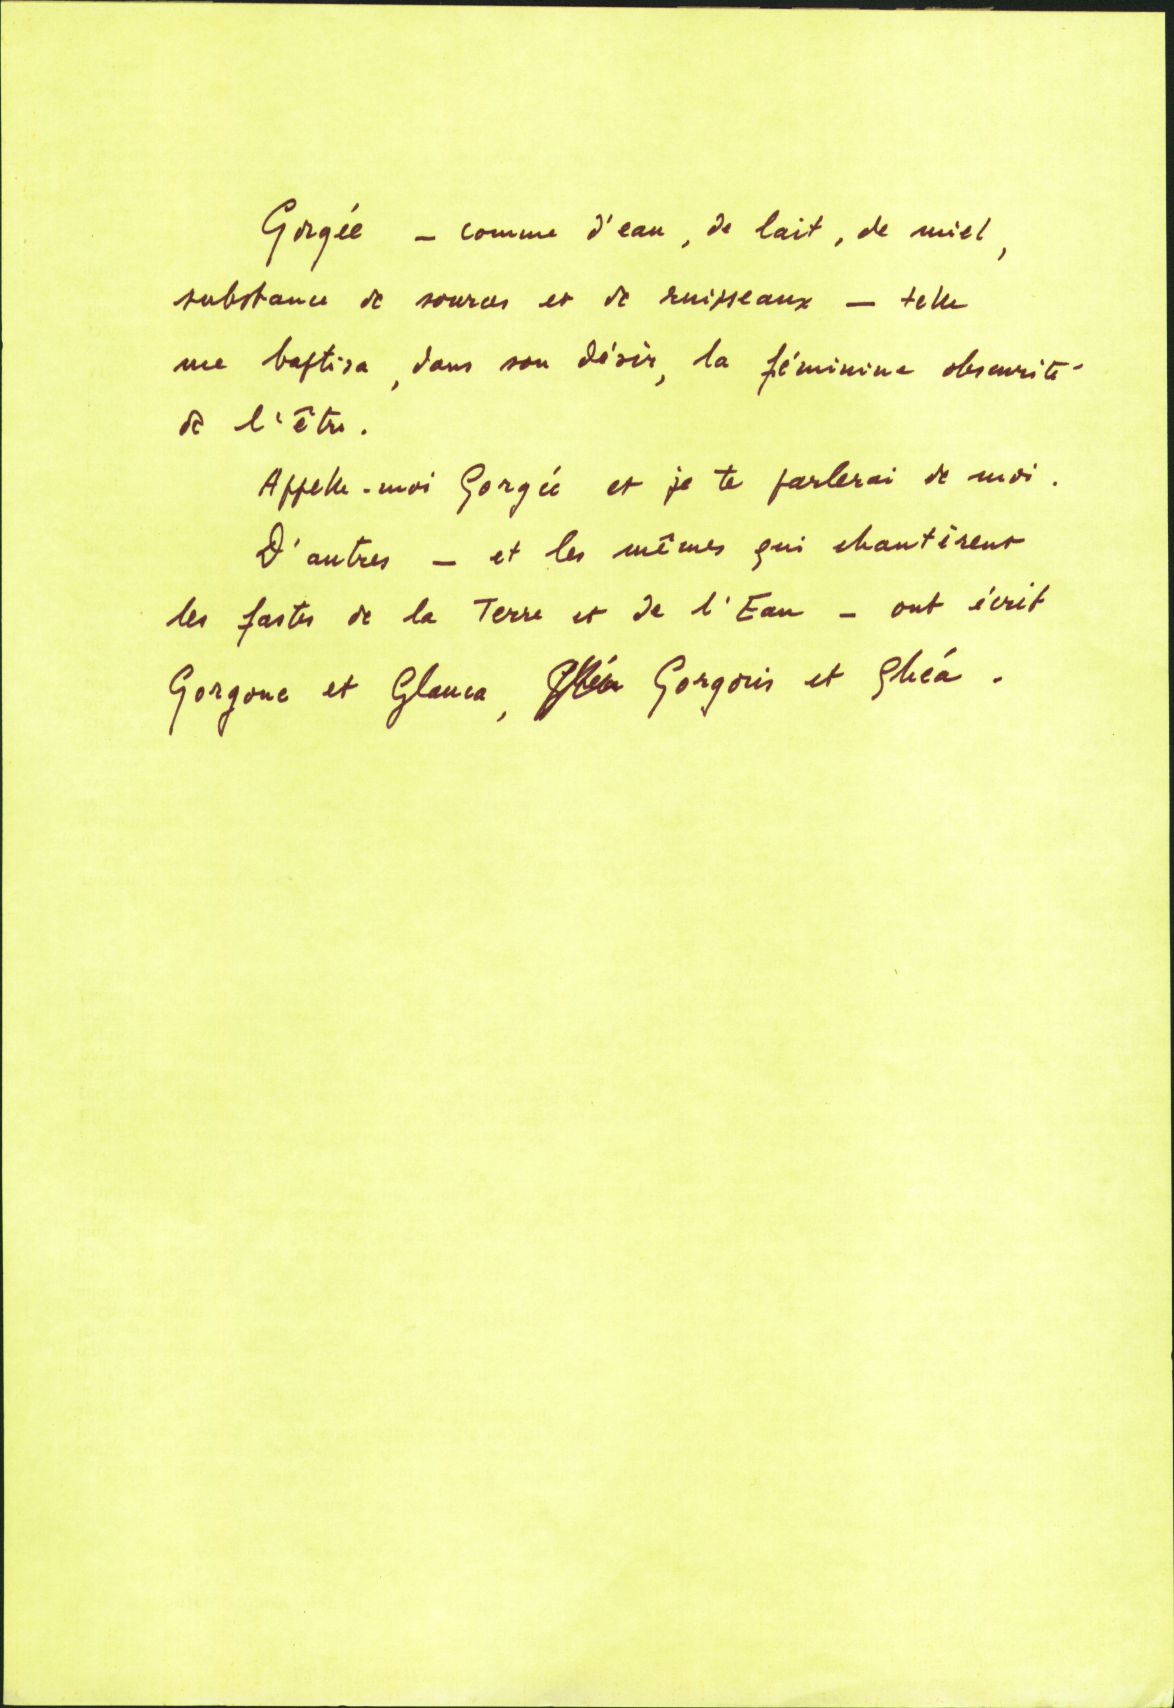 Gorgée – comme d'eau, de lait, de miel,
substance de sources et de ruisseaux – telle
me baptisa, dans son désir, la féminine obscurité
de l'être.
Appelle-moi Gorgée et je te parlerai de moi.
D'autres – et les mêmes qui chantèrent
les fastes de la Terre et de l'Eau – ont écrit
Gorgone et Glauca, Gorgoris et Ghéa.